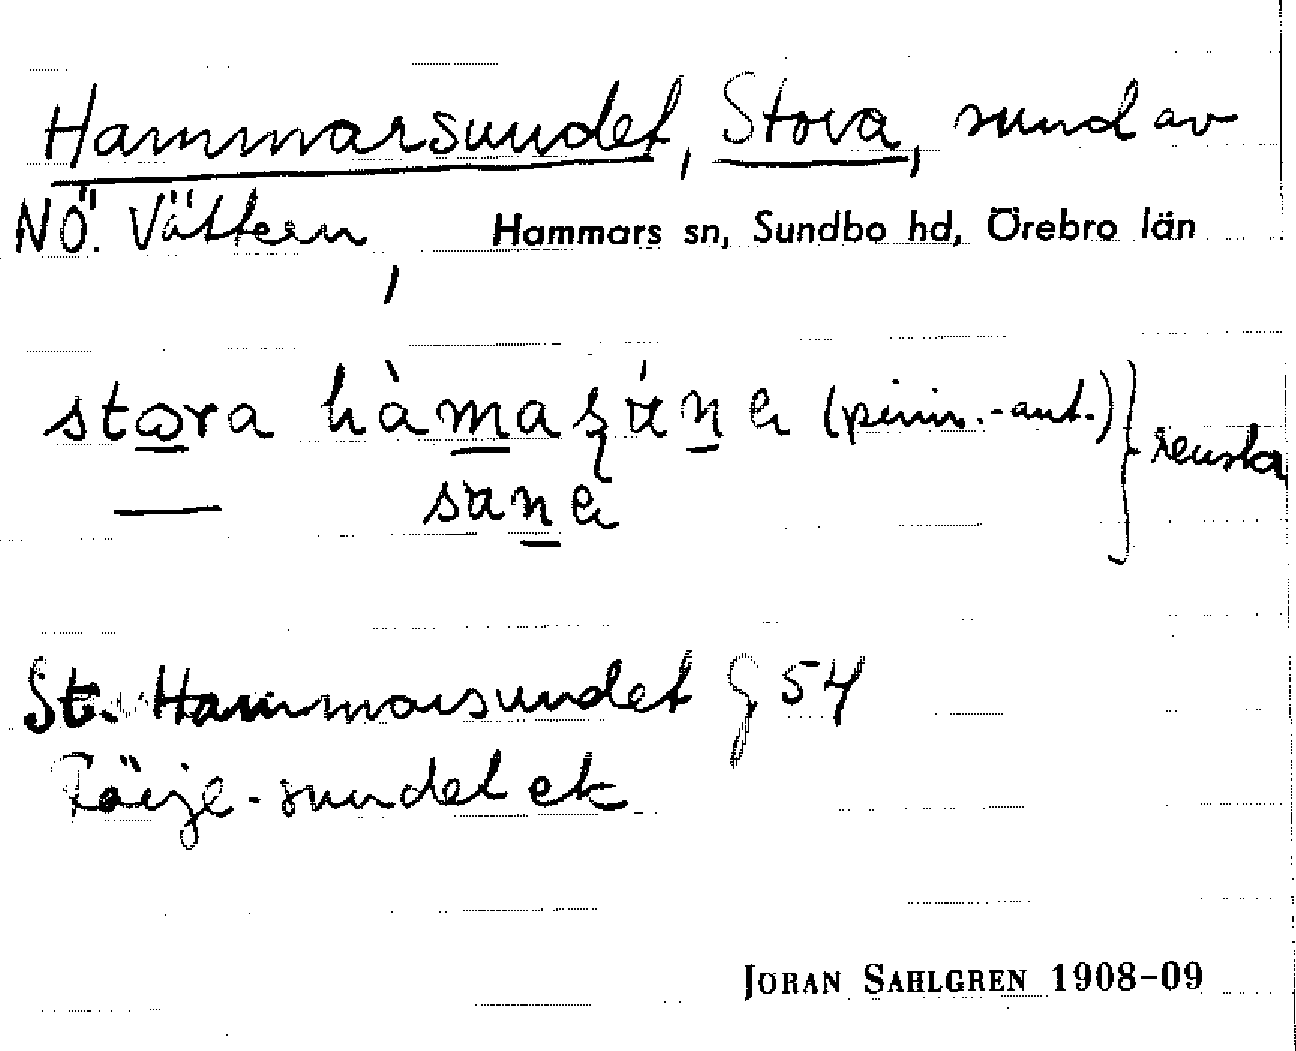 Hammarsundet, Stora, sund av
NÖ. Vättern, Hammars sn, Sundbo hd, Örebro län
stora hàmasúnε (penin.-ant.)
— sunε
St. Hammarsundet G 54
Röije-sundet ek
JÖRAN SAHLGREN 1908-09